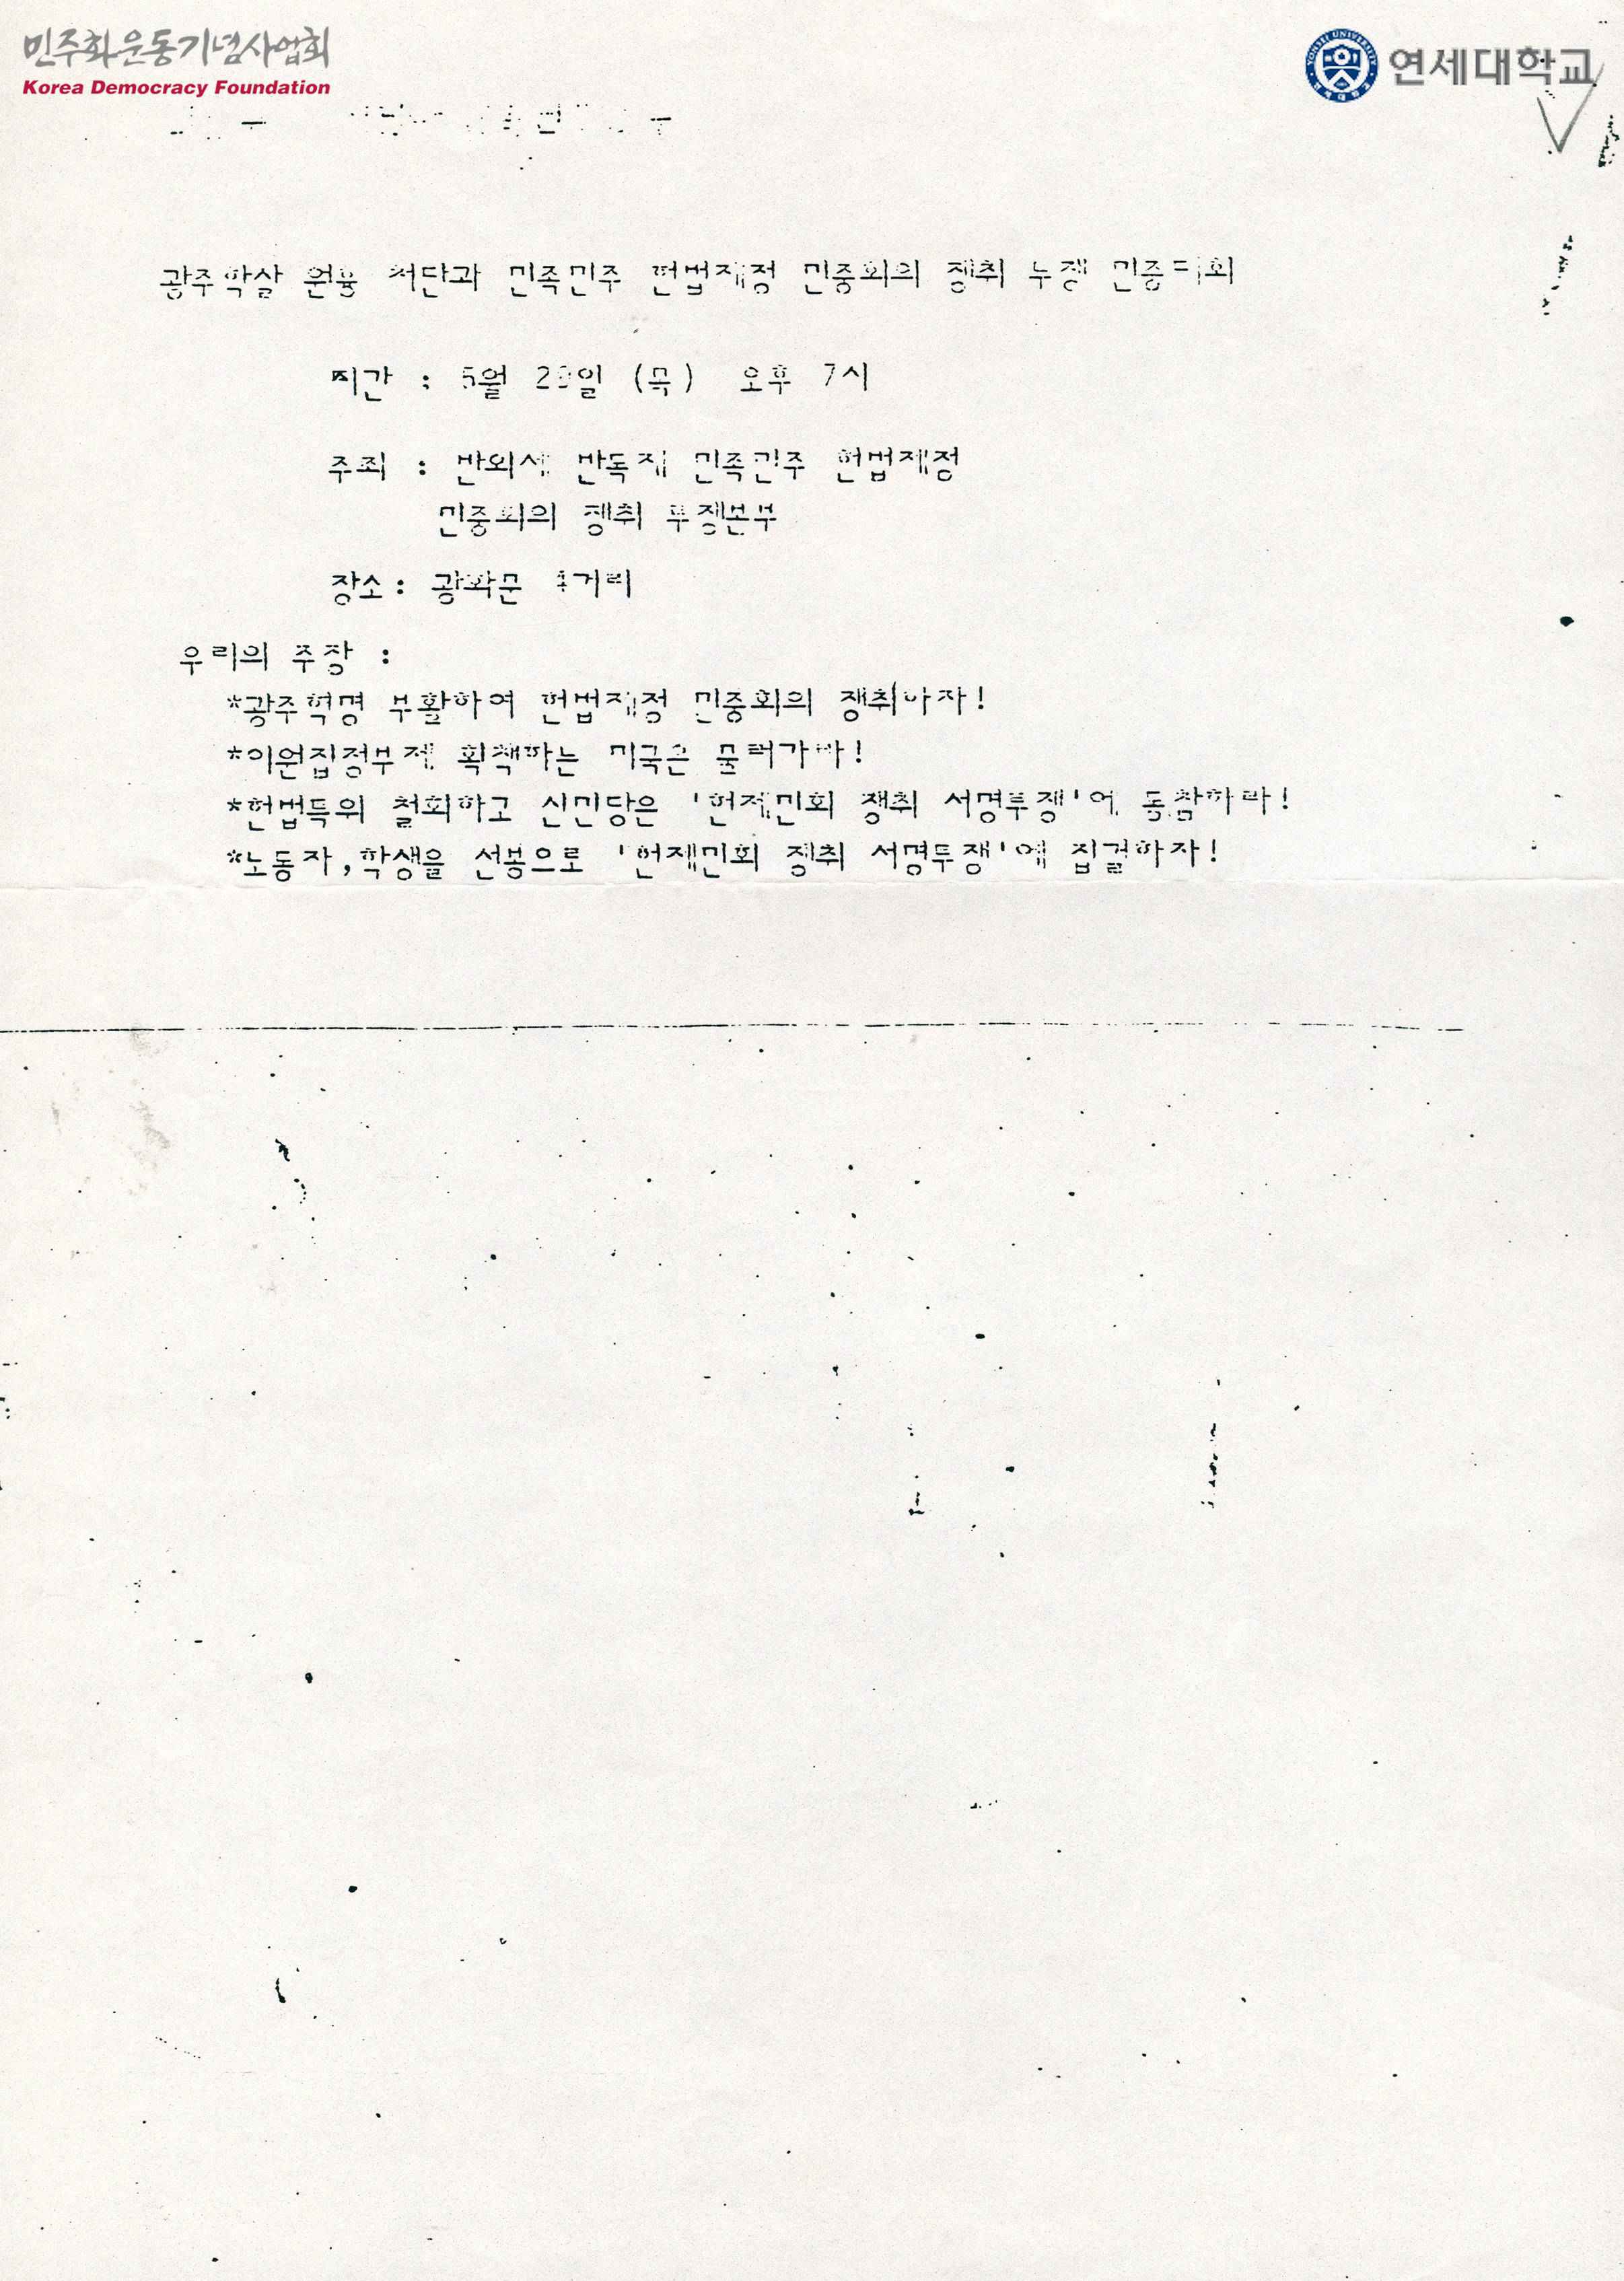 민주화운동기념사업회
Korea Democracy Foundation
연세대학교
광주학살 원흉 처단과 민족민주 헌법제정 민중회의 쟁취 투쟁 민중대회
시간 : 5월 29일 (목) 오후 7시
주최 : 반외세 반독재 민족민주 헌법제정
민중회의 쟁취 투쟁본부
장소 : 광화문 4거리
우리의 주장 :
*광주혁명 부활하여 헌법제정 민중회의 쟁취하자!
*이원집정부제 획책하는 미국은 물러가라!
*헌법특위 철회하고 신민당은 '헌제민회 쟁취 서명투쟁'에 동참하라!
*노동자,학생을 선봉으로 '헌제민회 쟁취 서명투쟁'에 집결하자!